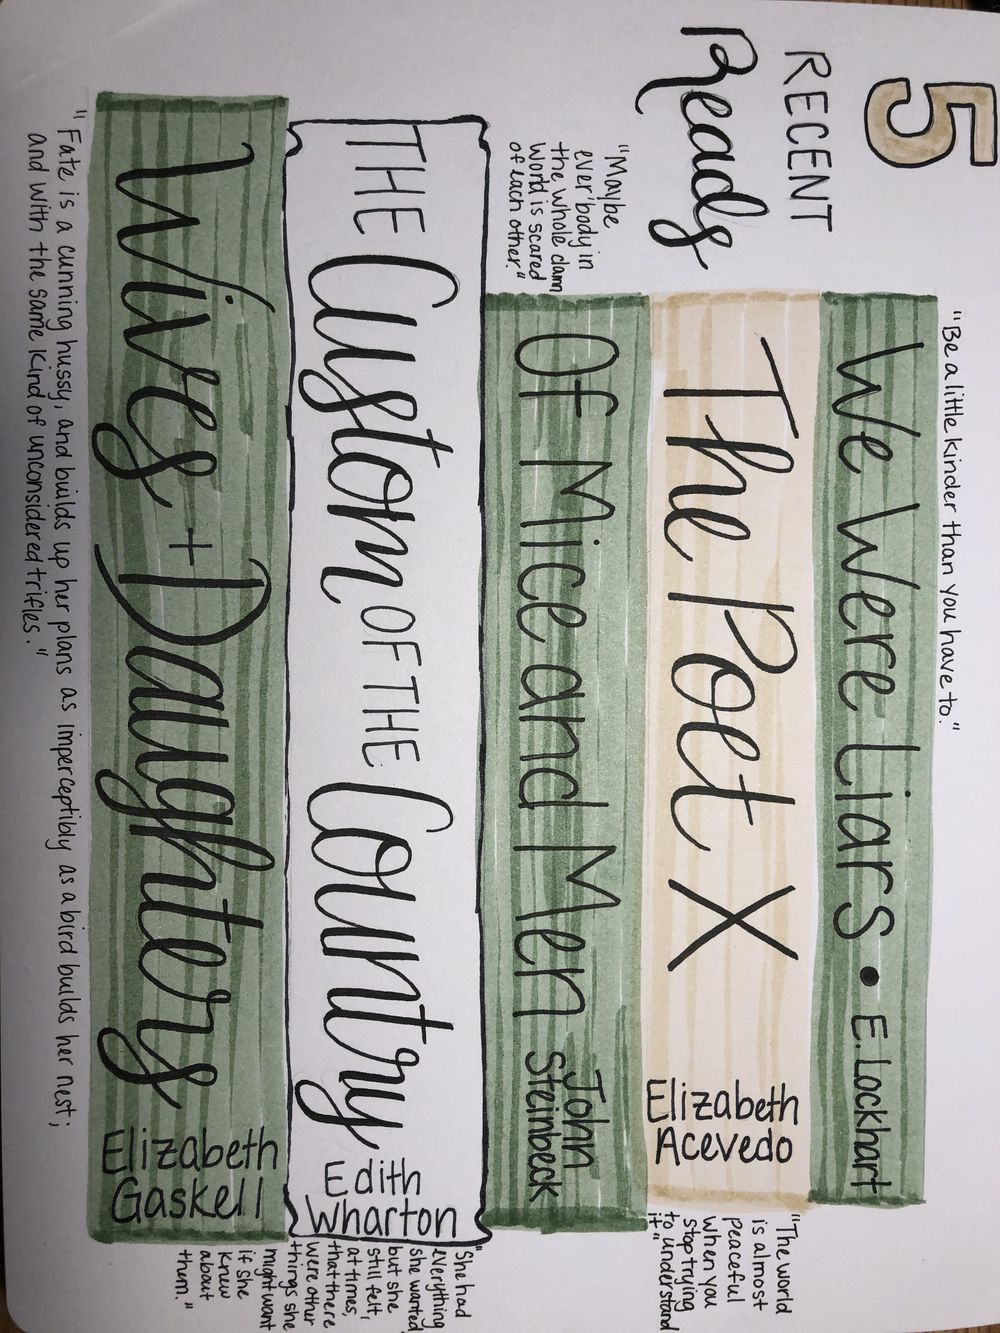 5
RECENT
Reads
"Be a little kinder than you have to."
We Were Liars • E. Lockhart
The Poet X
Elizabeth
Acevedo
"The world
is almost
peaceful
when you
stop trying
to understand
it"
"Maybe
ever'body in
the whole damn
world is scared
of each other."
Of Mice and Men
John
Steinbeck
THE Custom OF THE Country
Edith
Wharton
"She had
everything
she wanted,
but she
still felt,
at times,
that there
were other
things she
might want
if she
knew
about
them."
Wives + Daughters
Elizabeth
Gaskell
"Fate is a cunning hussy, and builds up her plans as imperceptibly as a bird builds her nest;
and with the same kind of unconsidered trifles."